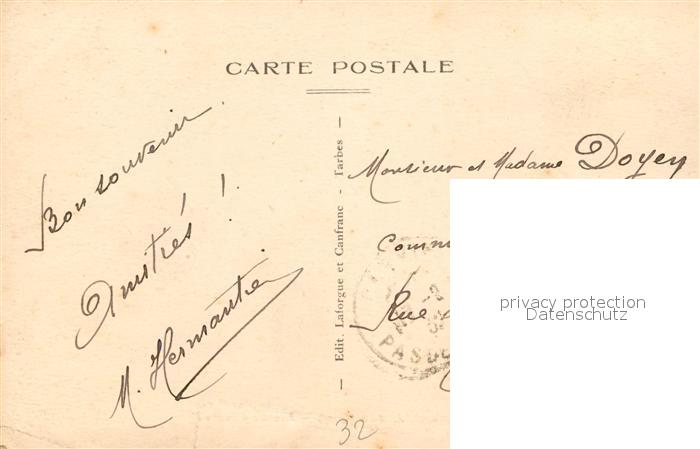 CARTE POSTALE
Bon souvenir
Amitiés !
M. Hermantier
Edit. Laforgue et Canfranc — Tarbes
Monsieur et Madame Doyen
Comm
Rue
PASD
32
privacy protection
Datenschutz